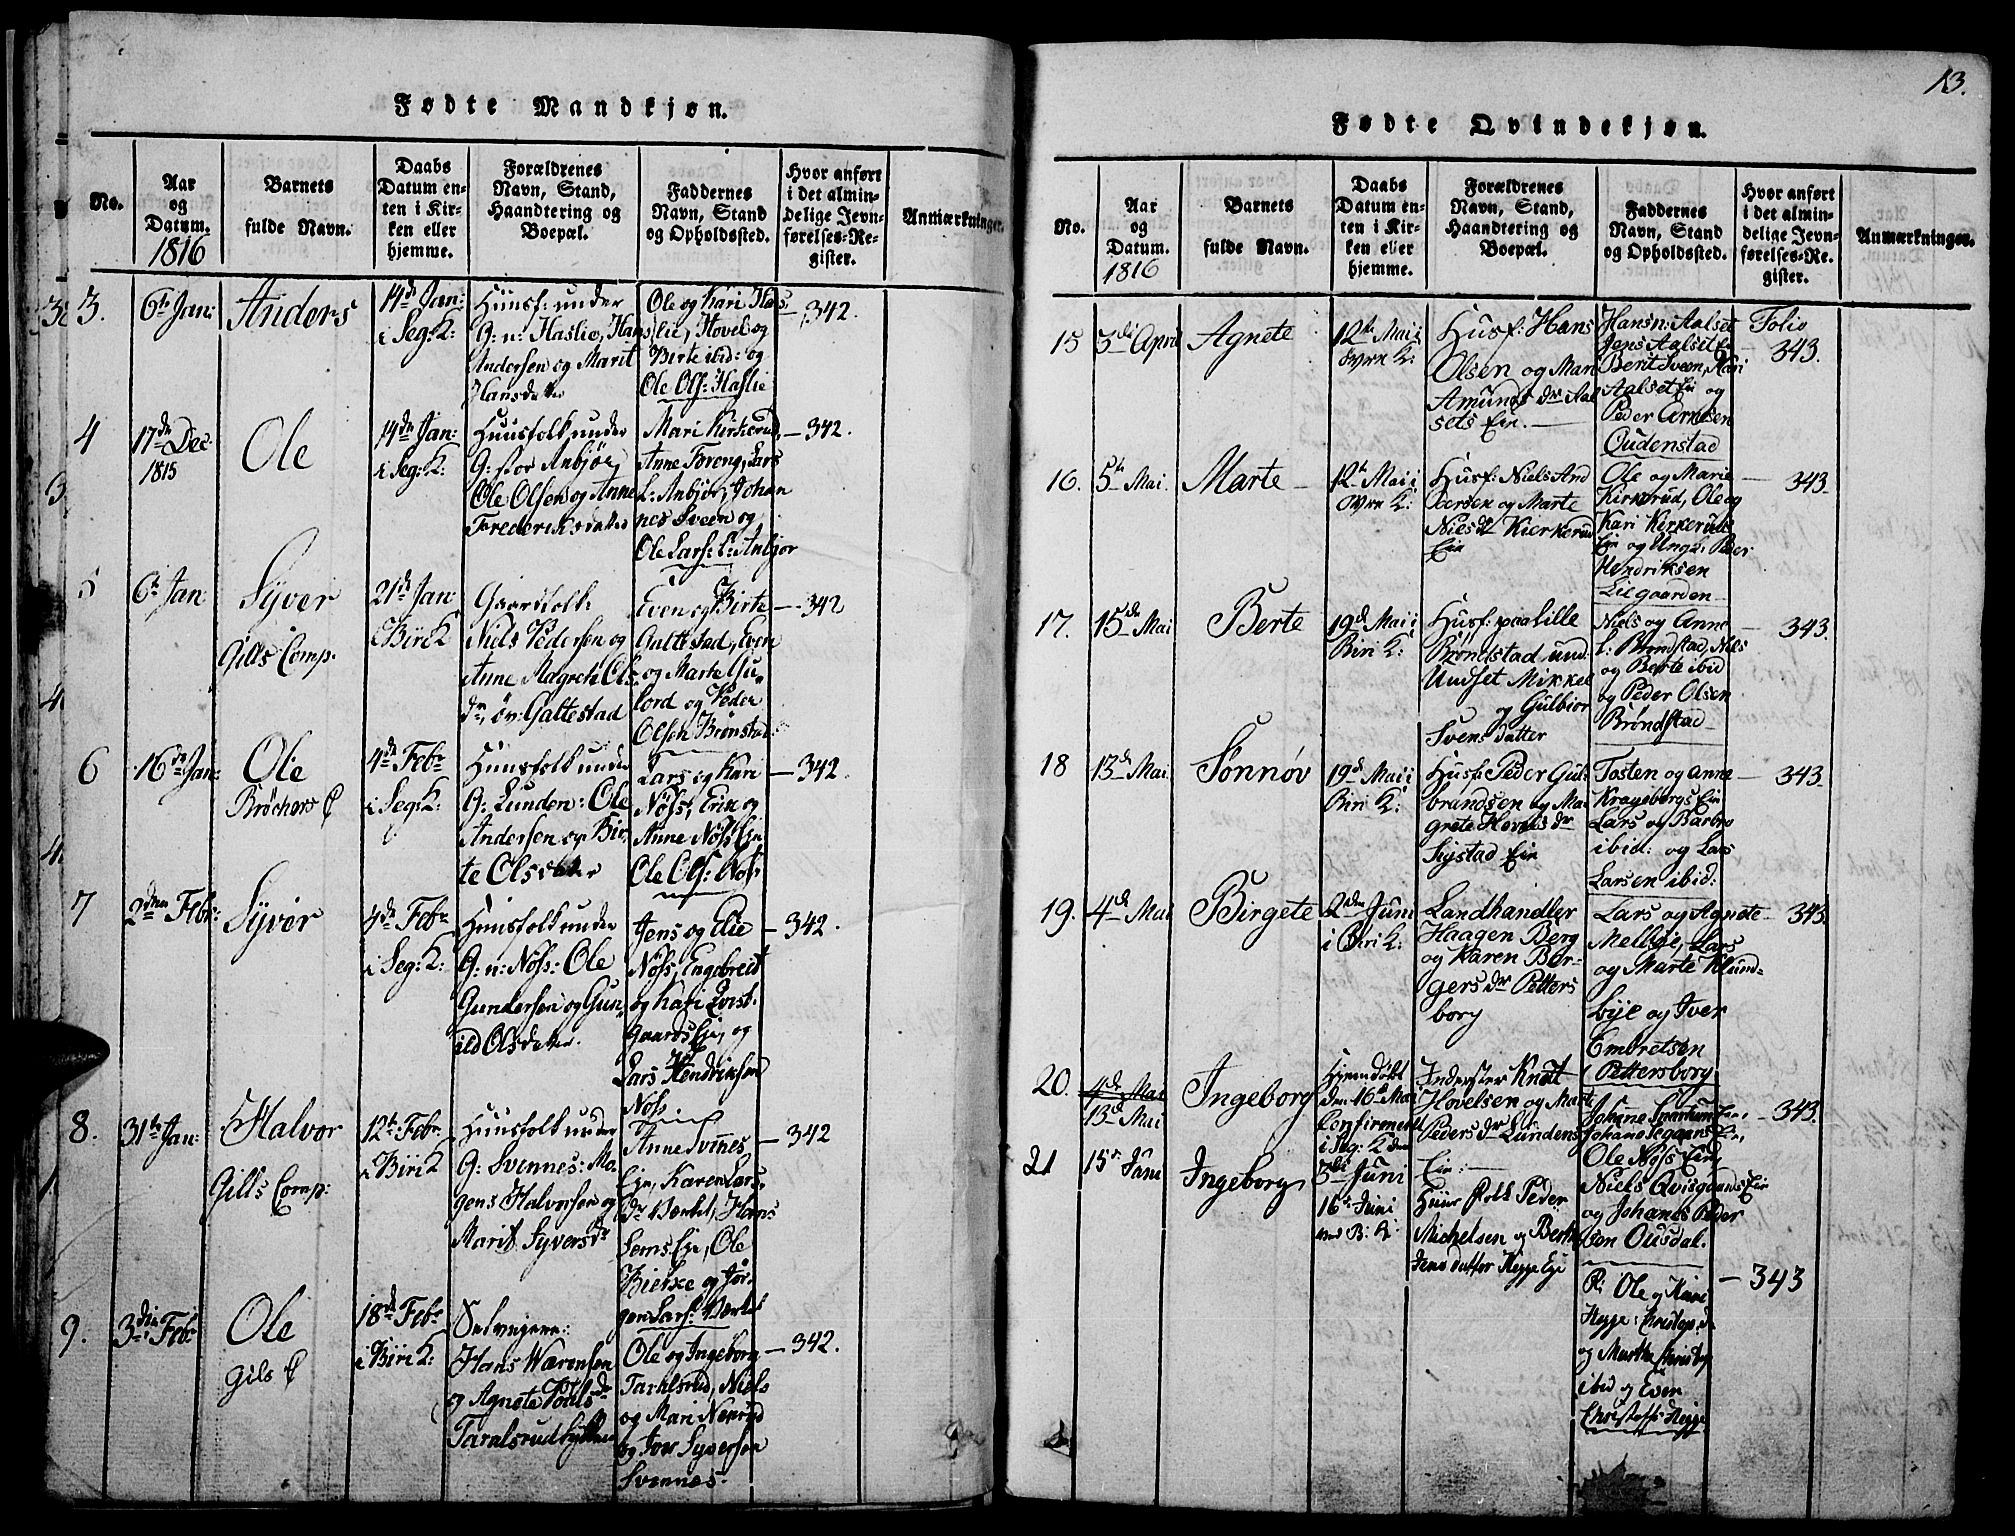 Fødte Mandkjøn.
No.
Aar
og
Datum.
1816
Barnets
fulde Navn.
Daabs
Datum en-
ten i Kir-
ken eller
hjemme.
Forældrenes
Navn, Stand,
Haandtering og
Boepæl.
Faddernes
Navn, Stand
og Opholdssted.
Hvor anført
i det almin-
delige Jevn-
førelses-Re-
gister.
Anmærkninger.
3.
6te Jan:
Anders
14de Jan:
i Seg: K:
Huusf: under
G: n: Haslie, Hans
Andersen og Marit
Hansdatter
Ole og Kari Has
lie, Hovel og
Birte ibid: og
Ole Ols: Haslie
342.
4
17de Dec.
1815
Ole
14de Jan:
i Seg: K:
Huusfolk under
G: stor Anbjør,
Ole Olsen og Anne
Frederiksdatter
Mari Kirkerud,
Anne Foreng, Lars
L: Anbjør, Johan
nes Sveen og
Ole Lars: L: Anbjør
— 342.
5
6te Jan:
Syver
Gills Comp:
21de Jan:
i Biri K
Gaardfolk:
Niels Pedersen og
Anne Magrete Ols
dr, øv: Galtestad
Even og Birte
Galtestad, Even
og Marte Gu
lord og Peder
Olsen Brønstad
— 342
6
16de Jan:
Ole
Brøchers C
4de Febr
i Seg: K:
Huusfolk under
G: Lunden: Ole
Andersen og Bir
te Olsdatter
Lars og Kari
Nøss, Erik og
Anne Nøss Eje
Ole Ols: Nøss
— 342.
7
2den Febr:
Syver
4de Febr
i Seg: K:
Huusfolk under
G: n: Nøss: Ole
Gundersen og Gun
ild Olsdatter.
Jens og Elie
Nøss, Engebret
og Kari Qvist
gaards Eje, og
Lars Hendriksen
Nøss
— 342.
8.
31te Jan:
Halvor
Gills Comp:
12te Febr
i Biri K
Huusfolk under
G: Svennes: Mo
gens Halvorsen og
Marit Syversdr
Anne Svnnes
Eje, Karen Lars
dr Værket, Hans
Sems Eje, Ole
Bierke og Jør
gen Lars: Værket
— 342
9.
3die Febr
Ole
Gils C
18de Febr
i Biri K:
Selvejere:
Hans Wærensen
og Agnete Povlsdr
Taralsrud
Ole og Ingeborg
Taralsrud, Niels
og Mari Nerrud
og Jver Syversen
Svennes.
— 342.
13.
Fødte Qvindekjøn.
No.
Aar
og
Datum.
1816
Barnets
fulde Navn.
Daabs
Datum en-
ten i Kir-
ken eller
hjemme.
Forældrenes
Navn, Stand,
Haandtering og
Boepæl.
Faddernes
Navn, Stand
og Opholdssted.
Hvor anført
i det almin-
delige Jevn-
førelses-Re-
gister.
Anmærkninger.
15
3de April
Agnete
12te Mai i
Husf: Hans
Olsen og Mari
Amunds dr Aal
sets Eie.
Hans n: Aalset
Jens Aalset
Berit Sveen, Kari
Aalset Eie og
Peder Arnesen
Oudenstad
Folio
343.
16.
5te Mai.
Marte
12te Mai i
Husf: Niels And
ersen og Marte
Niels dr Kierkerud
Eie
Ole og Marie
Kirkerud, Ole og
Kari Kirkeruds
Eie og Ungk: Peder
Hendriksen
Liegaarden
— 343.
17.
15de Mai
Berte
19de Mai i
Biri K:
Husf: paa Lille
Brøndstad und:
Undset Mikkel
og Gulbjor
Svens datter
Niels og Anne
L: Brøndstad, Niels
og Berte ibid
og Peder Olsen
Brøndstad
— 343.
18
13de Mai.
Sønnøv
19de Mai i
Biri K:
Husf: Peder Gul
brandsen og Mar
grete Hovels dr
Skjstad Eie
Tosten og Anne
Krageborgs Eie
Lars og Barbro
ibid: og Lars
Larsen ibid:
— 343.
19.
4de Mai
Birgete
2den Juni
i Biri K:
Landhandler
Haagen Berg
og Karen Ber
gers dr Petters
borg
Lars og Agnete
Melbye, Lars
og Marte Klund
bye og Iver
Embretsen
Pettersborg
— 343.
20.
4de Mai
13de Mai
Ingeborg
Hjemdøbt
den 16de Mai
Confirmeret
i Seg: K den
3de Juni
Inderster Knut
Hovelsen og Marte
Peders dr Lundens
Eie: —
Johane Snartum Eie,
Johane Segaars Eie,
Ole Nøss Eie,
Niels Qvisgaards Eie
og Johanes Peder
sen Ousdal.
— 343.
21
15de Juni
Ingeborg
16de Juni
ved B: K:
Huus folk Peder
Michelsen og Berthe
Jensdatter Hegge Eje
P: Ole og Kari
Hegge: Christop. d
og Marthe
ibid og Even
Christoffs Hegge
— 343